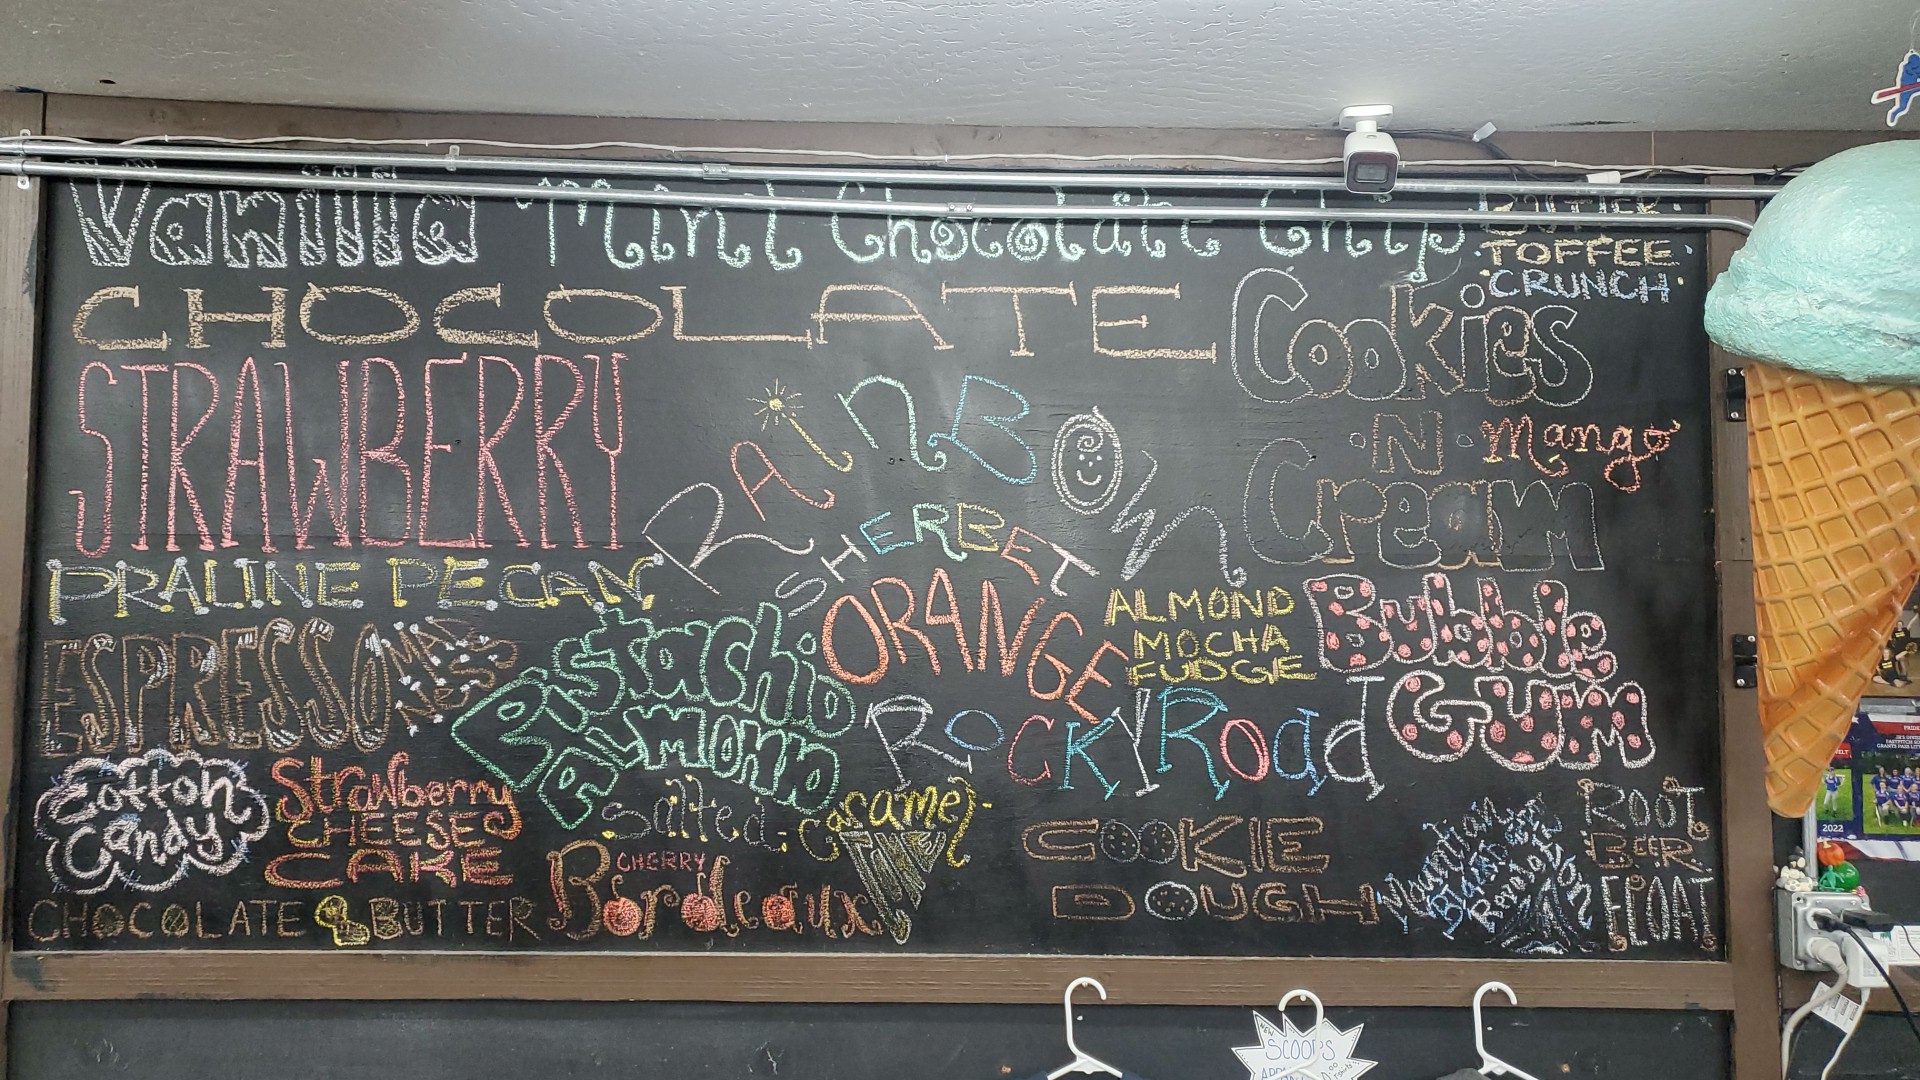 Vanilla Mint Chocolate Chip
BUTTER
TOFFEE
CRUNCH
CHOCOLATE
Cookies
N
Cream
Mango
STRAWBERRY
RAINBOW
SHERBET
ORANGE
PRALINE PECAN
ALMOND
MOCHA
FUDGE
Bubble
GUM
ESPRESSO
Pistachio
ALMOND
ROCKY ROad
Cotton
Candy
Strawberry
CHEESE
CAKE
Salted Caramel
CHERRY
Bordeaux
COOKIE
DOUGH
Revolution
ROOT
BEER
FLOAT
CHOCOLATE P BUTTER
NEW
SCOOPS
2022